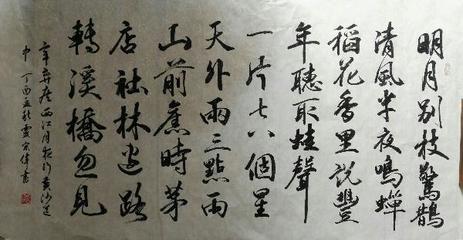 明月別枝驚鵲
清風半夜鳴蟬
稻花香里說豐
年聽取蛙聲
一片七八個星
天外兩三點雨
山前舊時茅
店社林邊路
轉溪橋忽見
辛棄疾西江月夜行黃沙道
中 丁酉 書